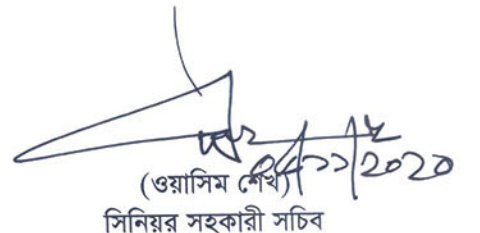 (ওয়াসিম শেখ)
সিনিয়র সহকারী সচিব